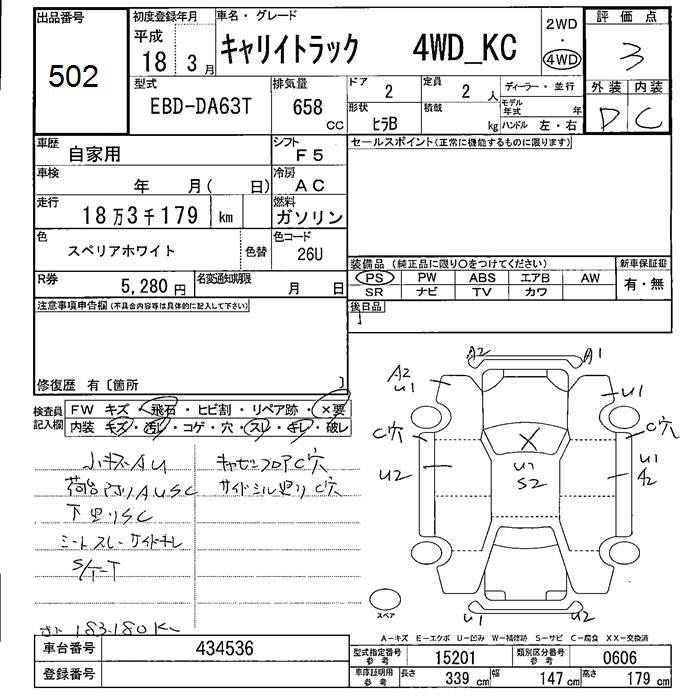 出品番号
502
初度登録年月
平成
18 3 月
車名・グレード
キャリイトラック 4WD_KC
2WD
・
4WD
評価点
3
外装 内装
D C
型式
EBD-DA63T
排気量
658
CC
ドア
2
定員
2 人
形状
ヒラB
積載
kg
ディーラー・並行
モデル年式 年
ハンドル 左・右
車歴
自家用
シフト
F5
車検
年 月( 日)
冷房
AC
走行
18万3千179 km
燃料
ガソリン
色
スペリアホワイト
色替
色コード
26U
R券
5,280 円
名変通知期限
月 日
セールスポイント(正常に機能するものに限ります)
装備品 (純正品に限り○をつけてください)
PS PW ABS エアB AW
SR ナビ TV カワ
新車保証書
有・無
後日品
注意事項申告欄(不具合内容等は具体的に記入して下さい)
修復歴 有〔箇所 〕
検査員記入欄
FW キズ・飛石・ヒビ割・リペア跡・×要
内装 キズ・汚レ・コゲ・穴・スレ・キレ・破レ
小キズAU
荷台 AUSC
下廻りSC
シートスレ サイドキレ
キャビンフロアC穴
サイドシル廻りC穴
183.180K
A2 A1
A2
U1
U1
C穴 C穴
U2
X
U1
S2
U1
A2
スペア
U1 U2
A−キズ E−エクボ U−凹み W−補修跡 S−サビ C−腐食 XX−交換済
車台番号
434536
登録番号
型式指定番号
参考
15201
類別区分番号
参考
0606
車庫証明用
参考
長さ 339 cm 幅 147 cm 高さ 179 cm